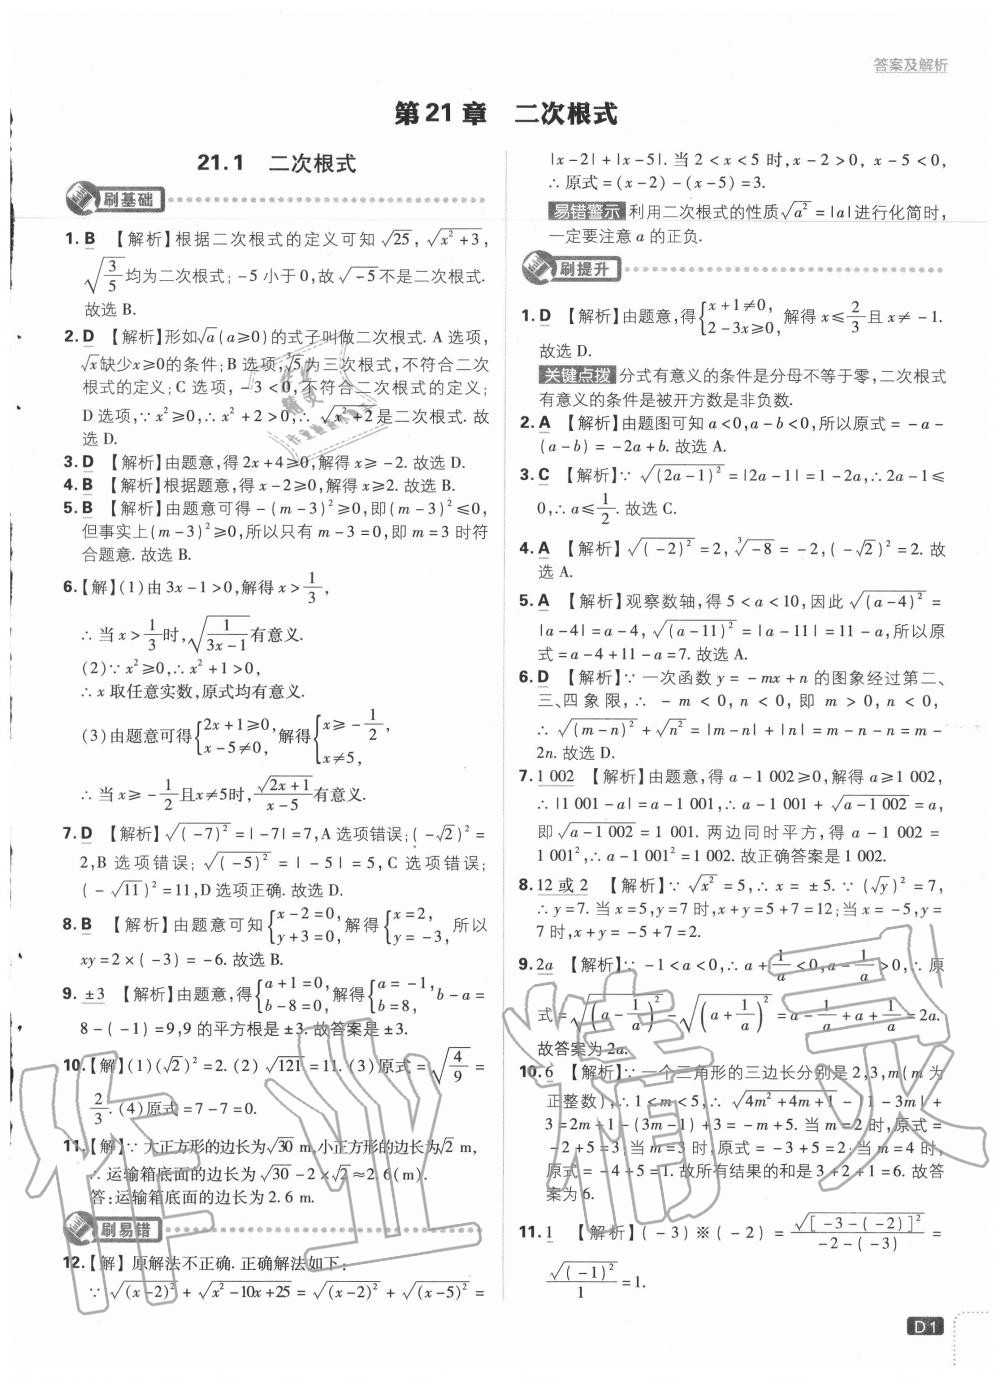 答案及解析
第21章 二次根式
21.1 二次根式
刷基础
1. B 【解析】根据二次根式的定义可知 √25, √(x²+3),
√(3/5) 均为二次根式; -5 小于 0,故 √-5 不是二次根式.
故选 B.
2. D 【解析】形如 √a (a≥0)的式子叫做二次根式. A 选项,
√x 缺少 x≥0 的条件; B 选项, ³√5 为三次根式,不符合二次
根式的定义; C 选项, -3<0,不符合二次根式的定义;
D 选项,∵ x²≥0,∴ x²+2>0,∴ √(x²+2) 是二次根式. 故
选 D.
3. D 【解析】由题意,得 2x+4≥0,解得 x≥-2. 故选 D.
4. B 【解析】根据题意,得 x-2≥0,解得 x≥2. 故选 B.
5. B 【解析】由题意可得 -(m-3)²≥0,即(m-3)²≤0,
但事实上(m-3)²≥0,所以只有 m-3=0,即 m=3 时符
合题意. 故选 B.
6.【解】(1)由 3x-1>0,解得 x>1/3,
∴ 当 x>1/3 时, √(1/(3x-1)) 有意义.
(2)∵ x²≥0,∴ x²+1>0,
∴ x 取任意实数,原式均有意义.
(3)由题意可得 {2x+1≥0, x-5≠0, 解得 {x≥-1/2, x≠5,
∴ 当 x≥-1/2 且 x≠5时, √(2x+1)/(x-5) 有意义.
7. D 【解析】√((-7)²)=|-7|=7,A 选项错误; (-√2)²=
2,B 选项错误; √((-5)²)=|-5|=5,C 选项错误;
(-√11)²=11,D 选项正确. 故选 D.
8. B 【解析】由题意可知 {x-2=0, y+3=0, 解得 {x=2, y=-3, 所以
xy=2×(-3)=-6. 故选 B.
9. ±3 【解析】由题意,得 {a+1=0, b-8=0, 解得 {a=-1, b=8, b-a=
8-(-1)=9,9 的平方根是 ±3. 故答案是 ±3.
10.【解】(1)(√2)²=2. (2) √121=11. (3)原式=√(4/9)=
2/3. (4)原式=7-7=0.
11.【解】∵ 大正方形的边长为 √30 m,小正方形的边长为 √2 m,
∴ 运输箱底面的边长为 √30-2×√2≈2.6(m).
答:运输箱底面的边长为 2.6 m.
刷易错
12.【解】 原解法不正确. 正确解法如下:
∵ √((x-2)²)+√(x²-10x+25)=√((x-2)²)+√((x-5)²)=
|x-2|+|x-5|. 当 2<x<5 时,x-2>0, x-5<0,
∴ 原式=(x-2)-(x-5)=3.
易错警示 利用二次根式的性质 √(a²)=|a|进行化简时,
一定要注意 a 的正负.
刷提升
1. D 【解析】由题意,得 {x+1≠0, 2-3x≥0, 解得 x≤2/3 且 x≠-1.
故选 D.
关键点拨 分式有意义的条件是分母不等于零,二次根式
有意义的条件是被开方数是非负数.
2. A 【解析】由题图可知 a<0,a-b<0,所以原式=-a-
(a-b)=-2a+b. 故选 A.
3. C 【解析】∵ √((2a-1)²)=|2a-1|=1-2a,∴ 2a-1≤
0,∴ a≤1/2. 故选 C.
4. A 【解析】√((-2)²)=2, ³√-8=-2,(-√2)²=2. 故
选 A.
5. A 【解析】观察数轴,得 5<a<10,因此 √((a-4)²)=
|a-4|=a-4, √((a-11)²)=|a-11|=11-a,所以原
式=a-4+11-a=7. 故选 A.
6. D 【解析】∵ 一次函数 y=-mx+n 的图象经过第二、
三、四象限,∴ -m<0, n<0, 即 m>0, n<0,
∴ √((m-n)²)+√(n²)=|m-n|+|n|=m-n-n=m-
2n. 故选 D.
7. 1 002 【解析】由题意,得 a-1 002≥0,解得 a≥1 002,
∴ |1 001-a|=a-1 001,∴ a-1 001+√(a-1 002)=a,
即 √(a-1 002)=1 001. 两边同时平方,得 a-1 002=
1 001²,∴ a-1 001²=1 002. 故正确答案是 1 002.
8. 12 或 2 【解析】∵ √(x²)=5,∴ x=±5. ∵ (√y)²=7,
∴ y=7. 当 x=5,y=7 时,x+y=5+7=12;当 x=-5,y=
7 时,x+y=-5+7=2.
9. 2a 【解析】∵ -1<a<0,∴ a+1/a<0,a-1/a>0,∴ 原
式=√((a-1/a)²)-√((a+1/a)²)=a-1/a+a+1/a=2a.
故答案为 2a.
10. 6 【解析】∵ 一个三角形的三边长分别是 2,3,m(m 为
正整数),∴ 1<m<5,∴ √(4m²+4m+1)-|1-3m|+
3=2m+1-(3m-1)+3=-m+5. 当 m=2 时,原式=
-2+5=3;当 m=3 时,原式=-3+5=2;当 m=4 时,
原式=-4+5=1. 故所有结果的和是 3+2+1=6. 故答
案为 6.
11. 1 【解析】(-3)※(-2)=√([-3-(-2)]²)/(-2-(-3))=
√((-1)²)/1=1.
D1
作业精灵